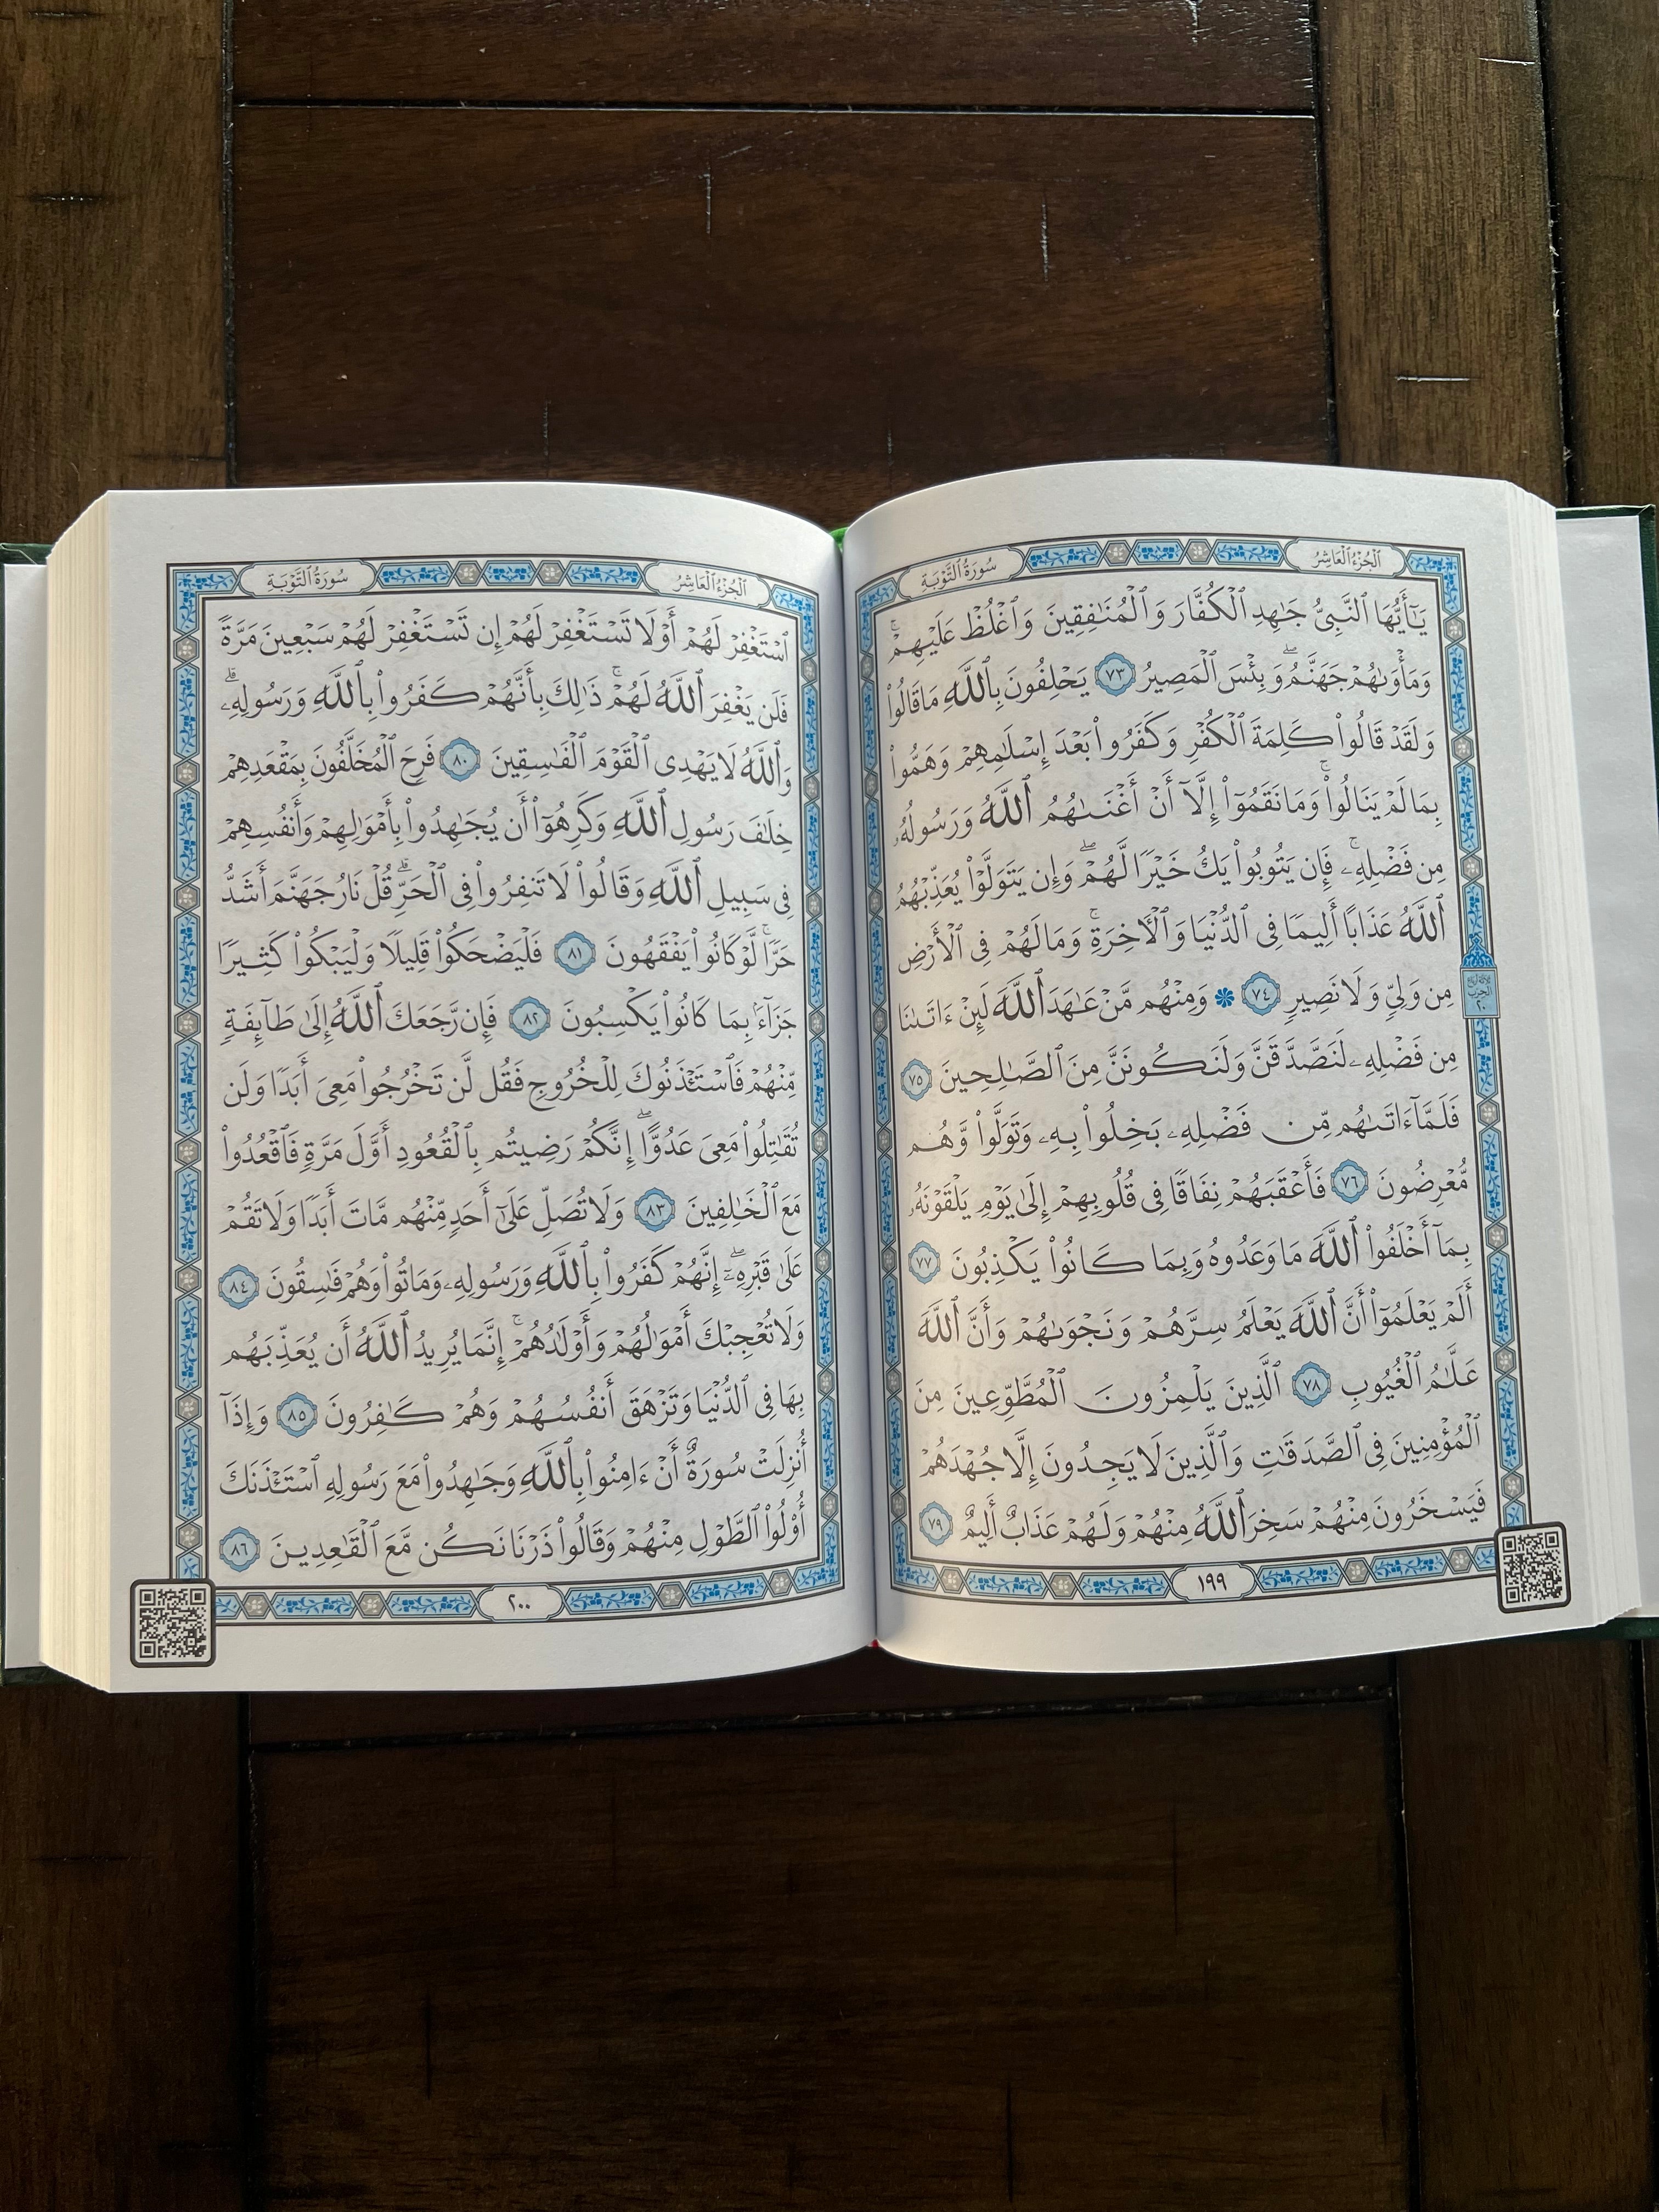 الجزء العاشر
سورة التوبة
يَٰٓأَيُّهَا ٱلنَّبِىُّ جَٰهِدِ ٱلۡكُفَّارَ وَٱلۡمُنَٰفِقِينَ وَٱغۡلُظۡ عَلَيۡهِمۡۚ
وَمَأۡوَىٰهُمۡ جَهَنَّمُۖ وَبِئۡسَ ٱلۡمَصِيرُ ٧٣ يَحۡلِفُونَ بِٱللَّهِ مَا قَالُواْ
وَلَقَدۡ قَالُواْ كَلِمَةَ ٱلۡكُفۡرِ وَكَفَرُواْ بَعۡدَ إِسۡلَٰمِهِمۡ وَهَمُّواْ
بِمَا لَمۡ يَنَالُواْۚ وَمَا نَقَمُوٓاْ إِلَّآ أَنۡ أَغۡنَىٰهُمُ ٱللَّهُ وَرَسُولُهُۥ
مِن فَضۡلِهِۦۚ فَإِن يَتُوبُواْ يَكُ خَيۡرٗا لَّهُمۡۖ وَإِن يَتَوَلَّوۡاْ يُعَذِّبۡهُمُ
ٱللَّهُ عَذَابًا أَلِيمٗا فِى ٱلدُّنۡيَا وَٱلۡأٓخِرَةِۚ وَمَا لَهُمۡ فِى ٱلۡأَرۡضِ
مِن وَلِىّٖ وَلَا نَصِيرٖ ٧٤ ۞ وَمِنۡهُم مَّنۡ عَٰهَدَ ٱللَّهَ لَئِنۡ ءَاتَىٰنَا
مِن فَضۡلِهِۦ لَنَصَّدَّقَنَّ وَلَنَكُونَنَّ مِنَ ٱلصَّٰلِحِينَ ٧٥
فَلَمَّآ ءَاتَىٰهُم مِّن فَضۡلِهِۦ بَخِلُواْ بِهِۦ وَتَوَلَّواْ وَّهُم
مُّعۡرِضُونَ ٧٦ فَأَعۡقَبَهُمۡ نِفَاقٗا فِى قُلُوبِهِمۡ إِلَىٰ يَوۡمِ يَلۡقَوۡنَهُۥ
بِمَآ أَخۡلَفُواْ ٱللَّهَ مَا وَعَدُوهُ وَبِمَا كَانُواْ يَكۡذِبُونَ ٧٧
أَلَمۡ يَعۡلَمُوٓاْ أَنَّ ٱللَّهَ يَعۡلَمُ سِرَّهُمۡ وَنَجۡوَىٰهُمۡ وَأَنَّ ٱللَّهَ
عَلَّٰمُ ٱلۡغُيُوبِ ٧٨ ٱلَّذِينَ يَلۡمِزُونَ ٱلۡمُطَّوِّعِينَ مِنَ
ٱلۡمُؤۡمِنِينَ فِى ٱلصَّدَقَٰتِ وَٱلَّذِينَ لَا يَجِدُونَ إِلَّا جُهۡدَهُمۡ
فَيَسۡخَرُونَ مِنۡهُمۡ سَخِرَ ٱللَّهُ مِنۡهُمۡ وَلَهُمۡ عَذَابٌ أَلِيمٌ ٧٩
١٩٩
الجزء العاشر
سورة التوبة
ٱسۡتَغۡفِرۡ لَهُمۡ أَوۡ لَا تَسۡتَغۡفِرۡ لَهُمۡ إِن تَسۡتَغۡفِرۡ لَهُمۡ سَبۡعِينَ مَرَّةٗ
فَلَن يَغۡفِرَ ٱللَّهُ لَهُمۡۚ ذَٰلِكَ بِأَنَّهُمۡ كَفَرُواْ بِٱللَّهِ وَرَسُولِهِۦۗ
وَٱللَّهُ لَا يَهۡدِى ٱلۡقَوۡمَ ٱلۡفَٰسِقِينَ ٨٠ فَرِحَ ٱلۡمُخَلَّفُونَ بِمَقۡعَدِهِمۡ
خِلَٰفَ رَسُولِ ٱللَّهِ وَكَرِهُوٓاْ أَن يُجَٰهِدُواْ بِأَمۡوَٰلِهِمۡ وَأَنفُسِهِمۡ
فِى سَبِيلِ ٱللَّهِ وَقَالُواْ لَا تَنفِرُواْ فِى ٱلۡحَرِّۗ قُلۡ نَارُ جَهَنَّمَ أَشَدُّ
حَرّٗاۚ لَّوۡ كَانُواْ يَفۡقَهُونَ ٨١ فَلۡيَضۡحَكُواْ قَلِيلٗا وَلۡيَبۡكُواْ كَثِيرٗا
جَزَآءَۢ بِمَا كَانُواْ يَكۡسِبُونَ ٨٢ فَإِن رَّجَعَكَ ٱللَّهُ إِلَىٰ طَآئِفَةٖ
مِّنۡهُمۡ فَٱسۡتَـٔۡذَنُوكَ لِلۡخُرُوجِ فَقُل لَّن تَخۡرُجُواْ مَعِىَ أَبَدٗا وَلَن
تُقَٰتِلُواْ مَعِىَ عَدُوًّاۖ إِنَّكُمۡ رَضِيتُم بِٱلۡقُعُودِ أَوَّلَ مَرَّةٖ فَٱقۡعُدُواْ
مَعَ ٱلۡخَٰلِفِينَ ٨٣ وَلَا تُصَلِّ عَلَىٰٓ أَحَدٖ مِّنۡهُم مَّاتَ أَبَدٗا وَلَا تَقُمۡ
عَلَىٰ قَبۡرِهِۦٓۖ إِنَّهُمۡ كَفَرُواْ بِٱللَّهِ وَرَسُولِهِۦ وَمَاتُواْ وَهُمۡ فَٰسِقُونَ ٨٤
وَلَا تُعۡجِبۡكَ أَمۡوَٰلُهُمۡ وَأَوۡلَٰدُهُمۡۚ إِنَّمَا يُرِيدُ ٱللَّهُ أَن يُعَذِّبَهُم
بِهَا فِى ٱلدُّنۡيَا وَتَزۡهَقَ أَنفُسُهُمۡ وَهُمۡ كَٰفِرُونَ ٨٥ وَإِذَآ
أُنزِلَتۡ سُورَةٌ أَنۡ ءَامِنُواْ بِٱللَّهِ وَجَٰهِدُواْ مَعَ رَسُولِهِ ٱسۡتَـٔۡذَنَكَ
أُوْلُواْ ٱلطَّوۡلِ مِنۡهُمۡ وَقَالُواْ ذَرۡنَا نَكُن مَّعَ ٱلۡقَٰعِدِينَ ٨٦
٢٠٠